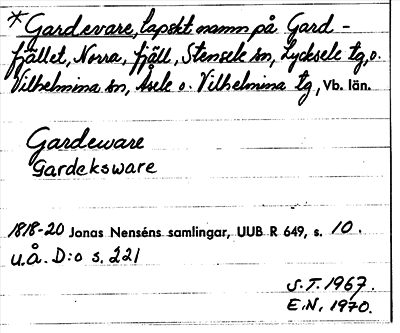 * Gardevare, lapskt namn på Gard-
fjället, Norra, fjäll, Stensele sn, Lycksele tg, o.
Vilhelmina sn, Åsele o. Vilhelmina tg, Vb. län.
Gardeware
Gardeksware
1818-20 Jonas Nenséns samlingar, UUB R 649, s. 10.
u.å. D:o s. 221
S.T. 1967.
E.N. 1970.